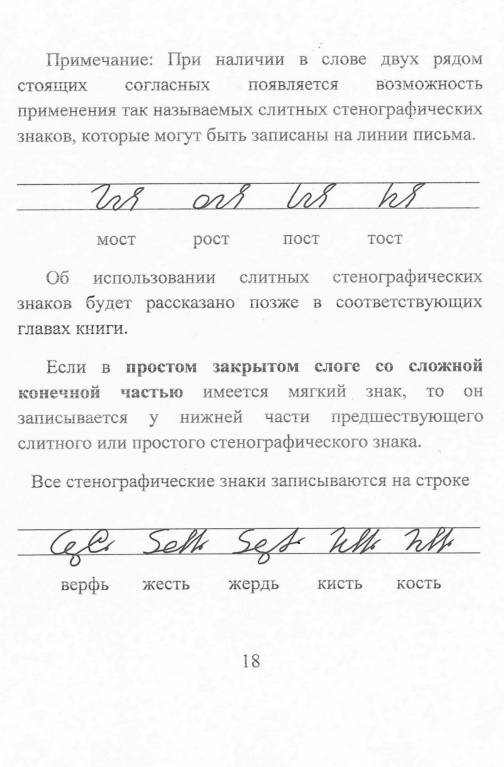 Примечание: При наличии в слове двух рядом
стоящих согласных появляется возможность
применения так называемых слитных стенографических
знаков, которые могут быть записаны на линии письма.
мост рост пост тост
Об использовании слитных стенографических
знаков будет рассказано позже в соответствующих
главах книги.
Если в простом закрытом слоге со сложной
конечной частью имеется мягкий знак, то он
записывается у нижней части предшествующего
слитного или простого стенографического знака.
Все стенографические знаки записываются на строке
верфь жесть жердь кисть кость
18